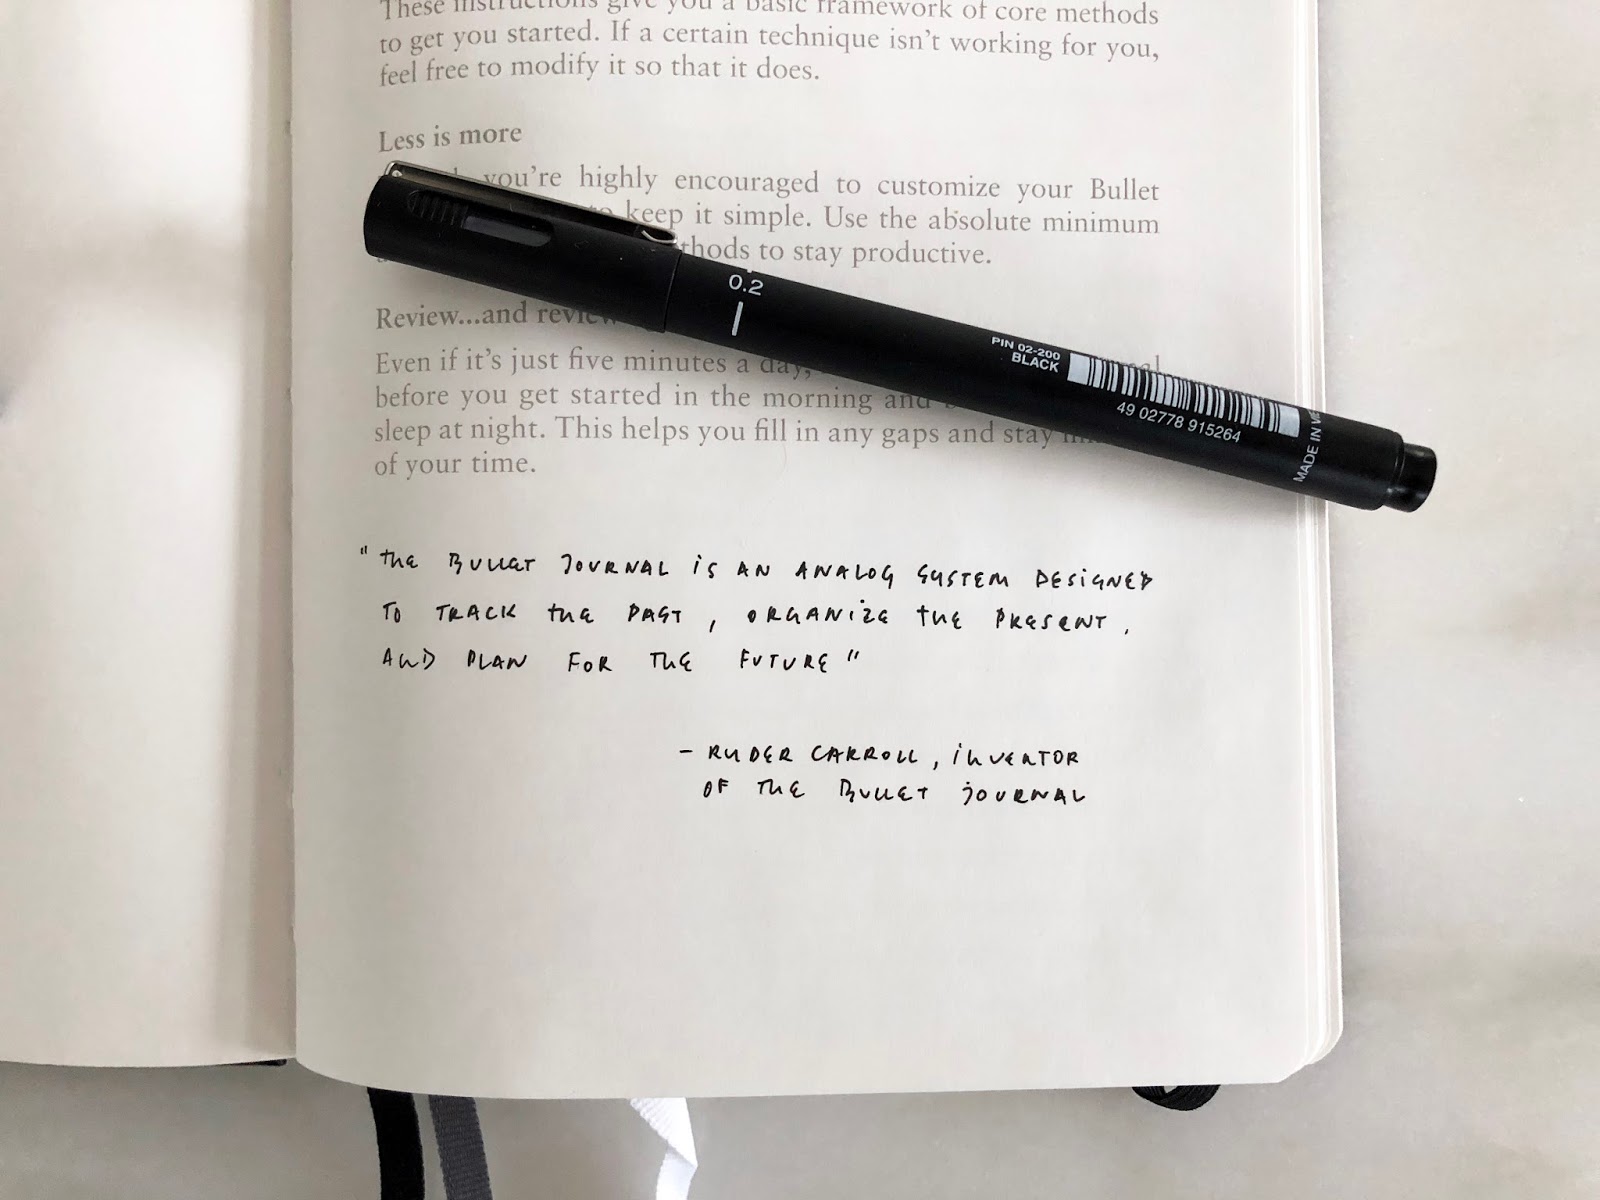 These instructions give you a basic framework of core methods
to get you started. If a certain technique isn't working for you,
feel free to modify it so that it does.
Less is more
you're highly encouraged to customize your Bullet
to keep it simple. Use the absolute minimum
thods to stay productive.
Review...and review
Even if it's just five minutes a day,
before you get started in the morning and
sleep at night. This helps you fill in any gaps and stay
of your time.
0.2
PIN 02-200
BLACK
49 02778 915264
MADE IN
"the BULLET JOURNAL is AN ANALOG SYSTEM DESiGNED
TO TRACK the PAST, ORGANiZE the PRESENT,
AND PLAN FOR THE FUTURE"
- RYDER CARROLL, iNVENTOR
OF THE BULLET jOURNAL